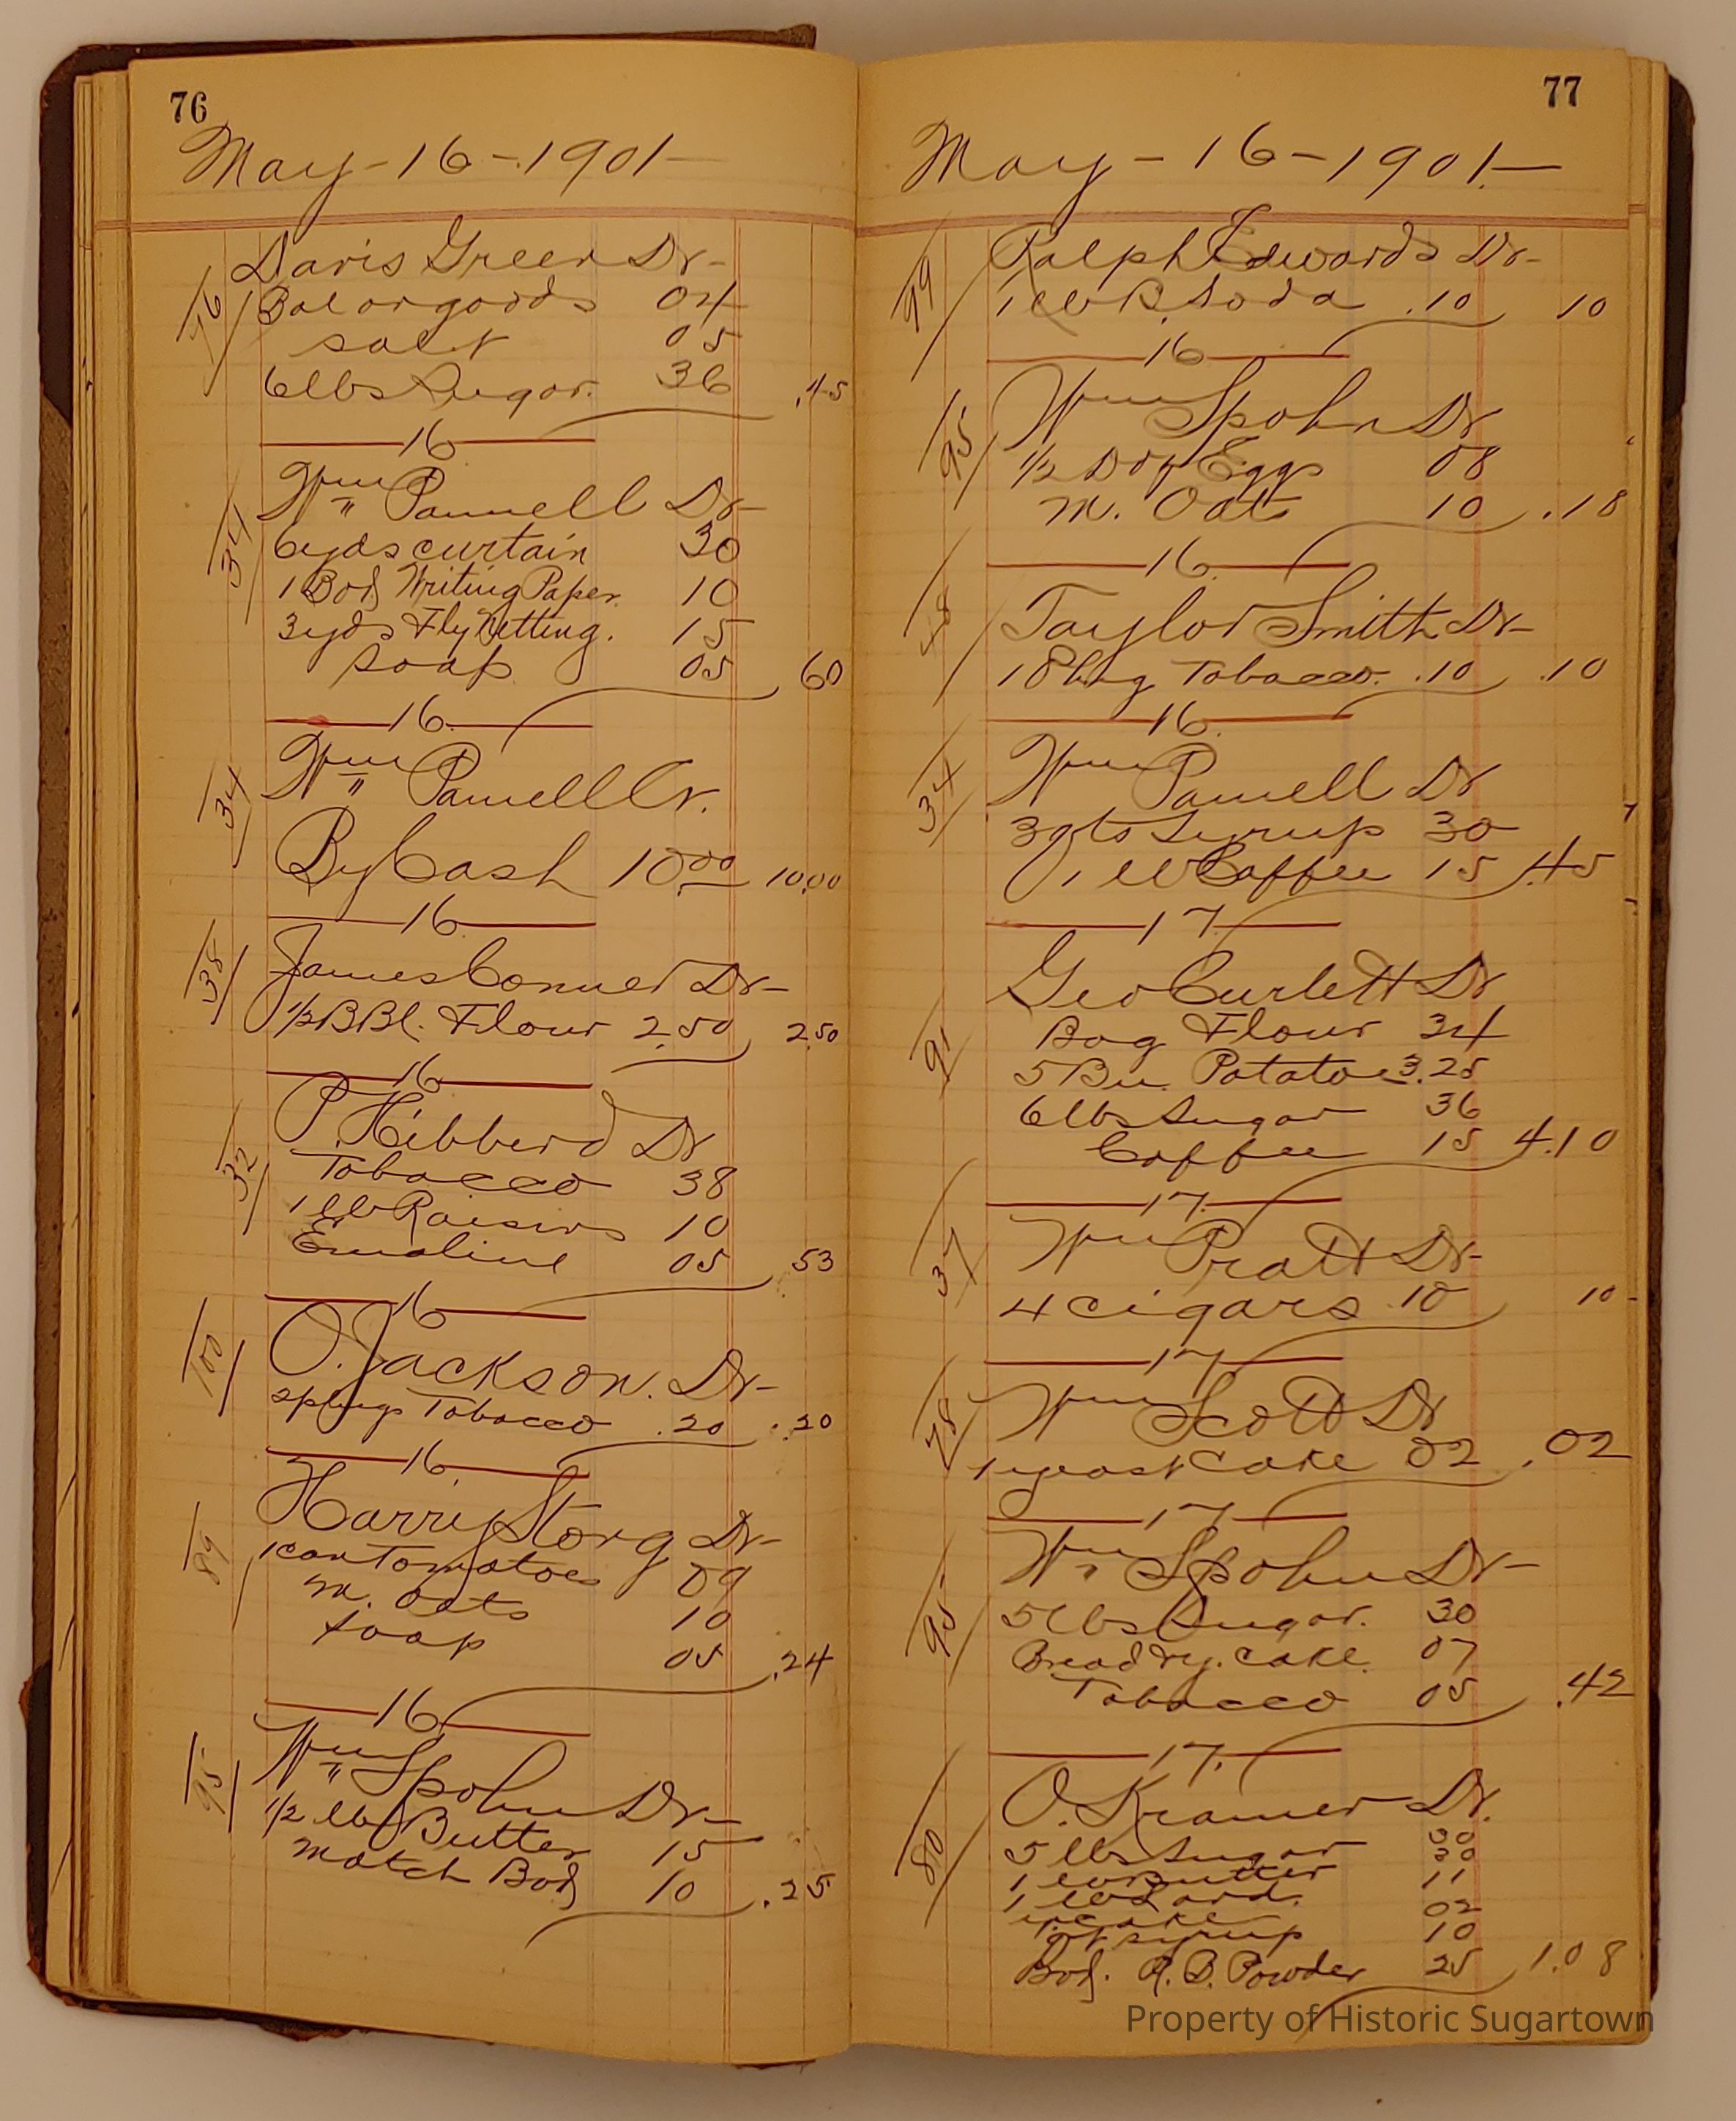 76
May - 16 - 1901 -
76
Davis Green Dr -
Bal on goods 04
salt 05
6 lbs Sugar. 36 .45
16
34
Wm Pannell Dr -
6 yds curtain 30
1 Box Writing Paper. 10
3 yds Fly Netting. 15
soap 05 60
16
34
Wm Pannell Cr.
By Cash 10.00 10.00
16
38
James Conner Dr -
1/2 BBl. Flour 2.50 2.50
16
32
P. Hibberd Dr
Tobacco 38
1 lb Raisins 10
Emaline 05 .53
16
100
O. Jackson. Dr -
2 plugs Tobacco .20 .20
16
89
Harry Storg Dr -
1 can Tomatoes 09
m. oats 10
soap 05 .24
16
95
Wm Spohn Dr -
1/2 lb Butter 15
match Box 10 .25
77
May - 16 - 1901 -
99
Ralph Edwards Dr -
1 lb B. Soda .10 10
16
95
Wm Spohn Dr
1/2 Doz Eggs 08
M. Oats 10 .18
16
Taylor Smith Dr -
1 Plug Tobacco. .10 .10
16
34
Wm Pannell Dr
3 qts Syrup 30
1 lb Coffee 15 .45
17
91
Geo Curlett Dr
Bag Flour 34
5 Bu. Potatoes 3.25
6 lbs Sugar 36
Coffee 15 4.10
17
37
Wm Pratt Dr -
4 cigars .10 10 -
17
78
Wm Scott Dr
1 yeast Cake 02 .02
17
95
Wm Spohn Dr -
5 lbs Sugar. 30
Bread & y. cake. 07
Tobacco 05 .42
17.
80
O. Kramer Dr.
5 lbs Sugar 30
1 lb Butter 30
1 lb Lard. 11
y. cake 02
qt syrup 10
Box. R. B. Powder 25 1.08
Property of Historic Sugartown